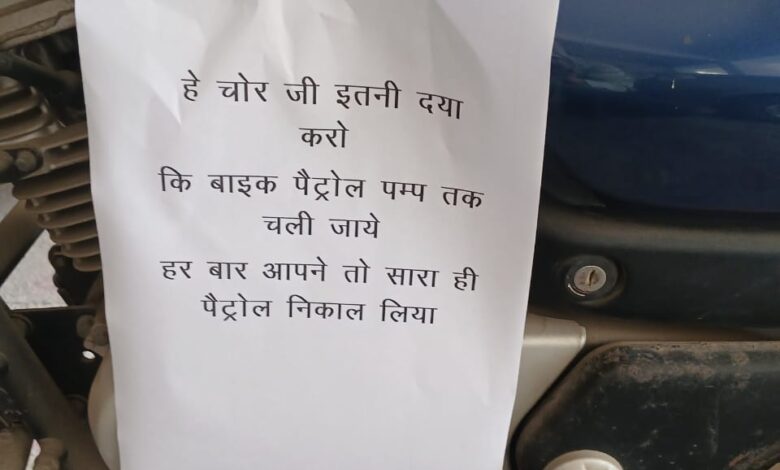 हे चोर जी इतनी दया
करो
कि बाइक पैट्रोल पम्प तक
चली जाये
हर बार आपने तो सारा ही
पैट्रोल निकाल लिया